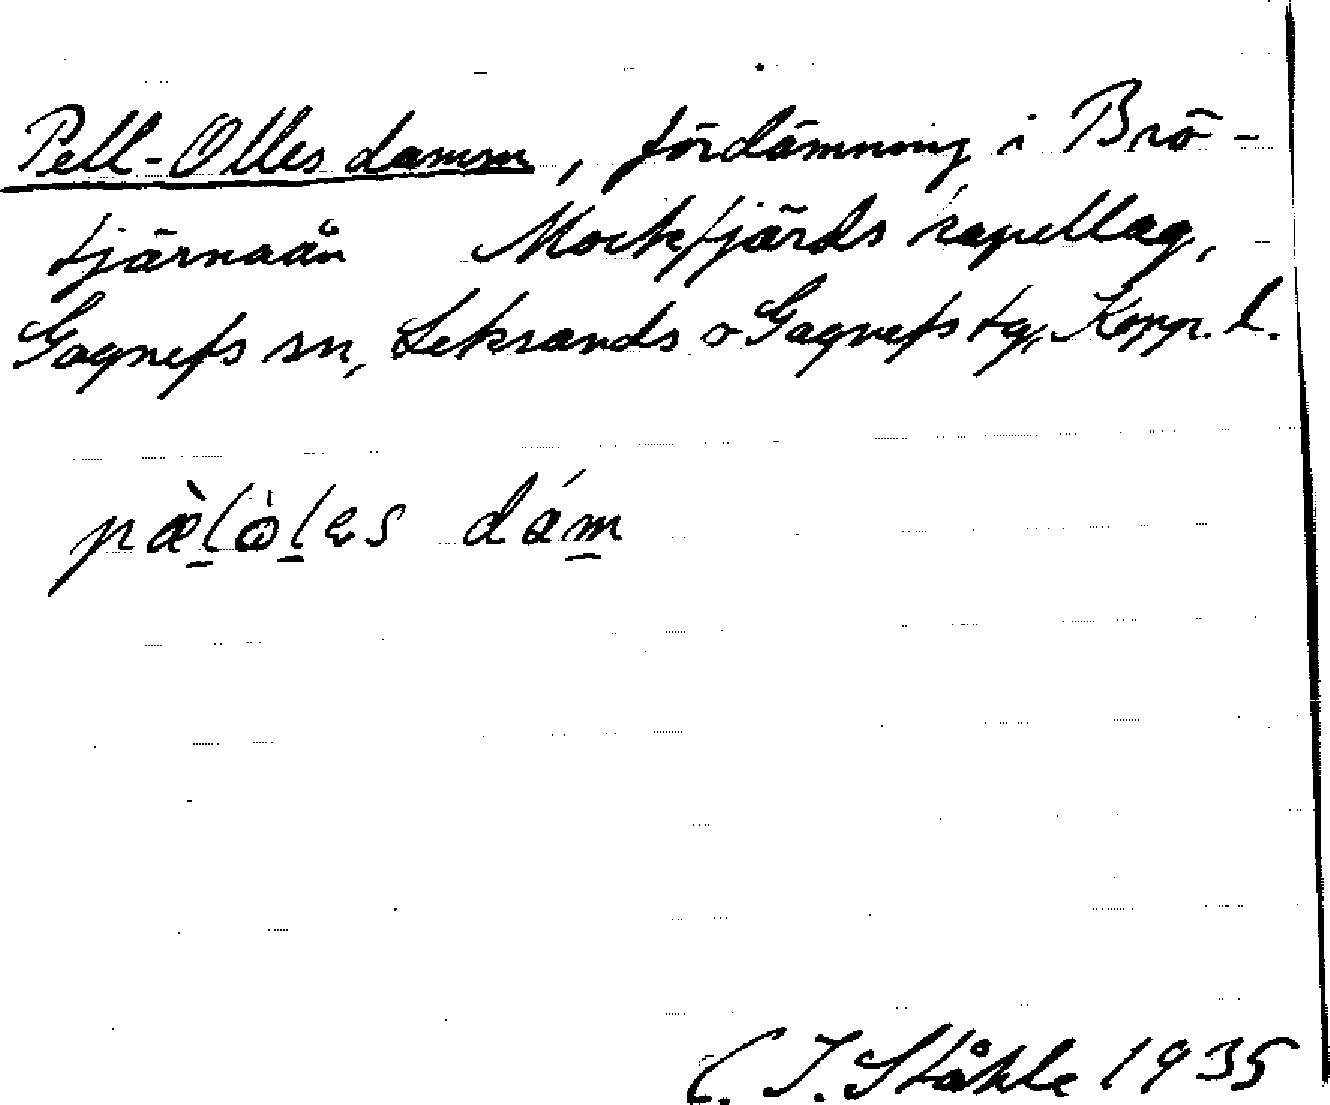 Pell-Olles damm, fördämning i Brö-
tjärnaån Mockfjärds kapellag,
Gagnefs sn, Leksands o Gagnefs tg, Kopp. l.
pæ̀l̠òl̠es dám̠
C. I. Ståhle 1935